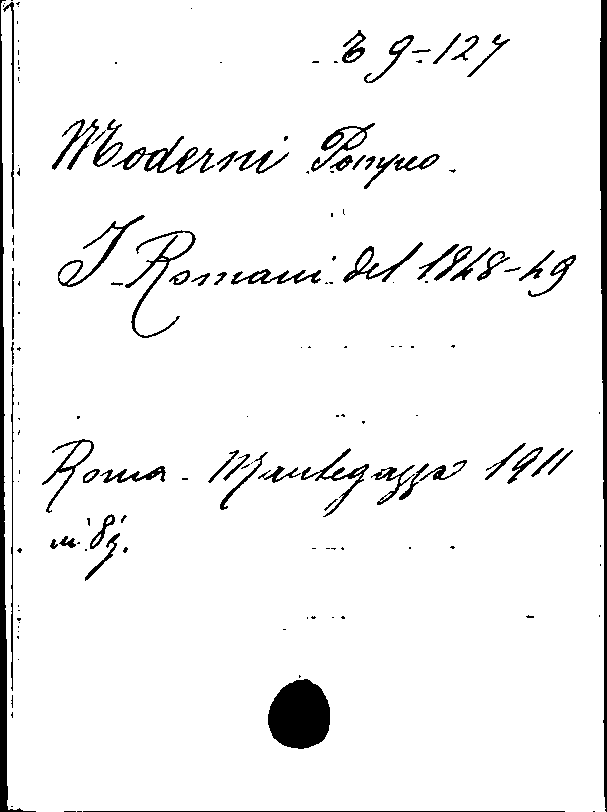 9-127
Moderni Pompeo.
I Romani del 1848-49
Roma - Mantegazza 1911
in 8: